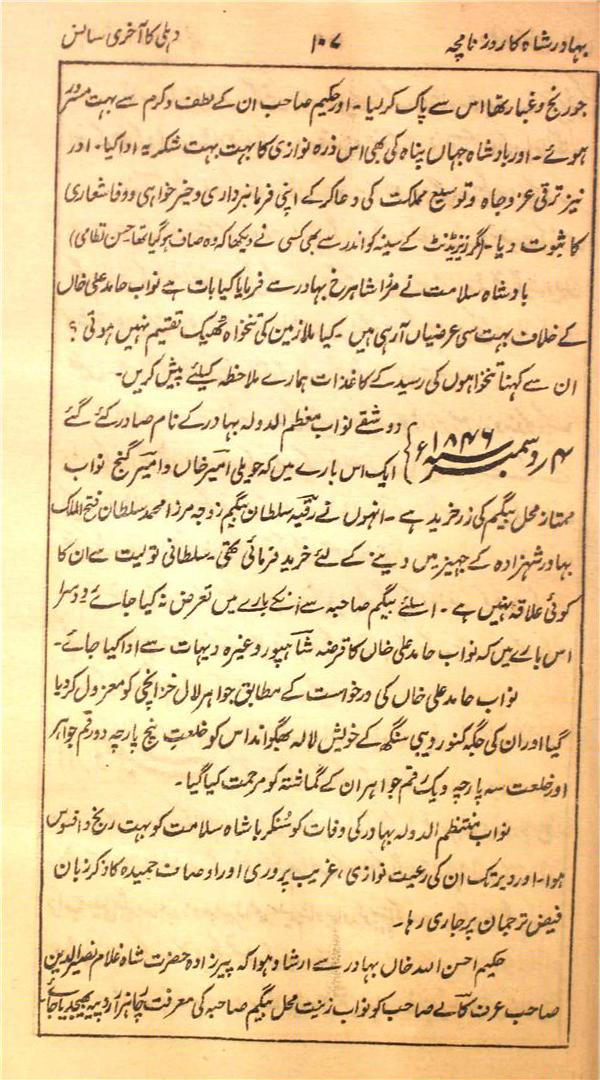 بہادر شاہ کا روزنامچہ ۱۰۷ دہلی کا آخری سانس
جو رنج و غبار تھا اس سے پاک کر لیا۔ اور حکیم صاحب ان کے لطف و کرم سے بہت مسرور
ہوئے۔ اور بادشاہ جہاں پناہ کی بھی اس ذرہ نوازی کا بہت بہت شکریہ ادا کیا۔ اور
نیز ترقی عز و جاہ و توسیع مملکت کی دعا کرکے اپنی فرمانبرداری و خیر خواہی و وفا شعاری
کا ثبوت دیا۔ (مگر رزیڈنٹ کے سینہ کو اندر سے بھی کسی نے دیکھا کہ وہ صاف ہوگیا تھا۔ حسن نظامی)
بادشاہ سلامت نے مرزا شاہرخ بہادر سے فرمایا کیا بات ہے نواب حامد علی خاں
کے خلاف بہت سی عرضیاں آرہی ہیں۔ کیا ملازمین کی تنخواہ ٹھیک تقسیم نہیں ہوتی ؟
ان سے کہنا تنخواہوں کی رسید کے کاغذات ہمارے ملاحظہ کیلئے پیش کریں۔
۴ ردسمبر سنہ ۱۸۴۶ء } دو شقے نواب معظم الدولہ بہادر کے نام صادر کئے گئے
ایک اس بارے میں کہ حویلی امیر خاں و امیر گنج نواب
ممتاز محل بیگم کی زر خرید ہے۔ انہوں نے رقیہ سلطان بیگم زوجہ مرزا محمد سلطان فتح الملک
بہادر شہزادہ کے جہیز میں دینے کے لئے خرید فرمائی تھی۔ سلطانی تولیت سے ان کا
کوئی علاقہ نہیں ہے۔ اسلئے بیگم صاحبہ سے انکے بارے میں تعرض نہ کیا جائے۔ دوسرا
اس بارے میں کہ نواب حامد علی خاں کا قرضہ شاہپور وغیرہ دیہات سے ادا کیا جائے۔
نواب حامد علی خاں کی درخواست کے مطابق جواہر لال خزانچی کو معزول کردیا
گیا اور ان کی جگہ کنور دیبی سنگھ کے خویش لالہ بھگوانداس کو خلعت پنج پارچہ دو رقم جواہر
اور خلعت سہ پارچہ و یک رقم جواہر ان کے گماشتہ کو مرحمت کیا گیا۔
نواب منتظم الدولہ بہادر کی وفات کو سُنکر بادشاہ سلامت کو بہت رنج و افسوس
ہوا۔ اور دیر تک ان کی رعیت نوازی، غریب پروری اور اوصاف حمیدہ کا ذکر زبان
فیض ترجمان پر جاری رہا۔
حکیم احسن اللہ خاں بہادر سے ارشاد ہوا کہ پیرزادہ حضرت شاہ غلام نصیر الدین
صاحب عرف کالے صاحب کو نواب زینت محل بیگم صاحبہ کی معرفت چار ہزار روپیہ بھیجدیا جائے